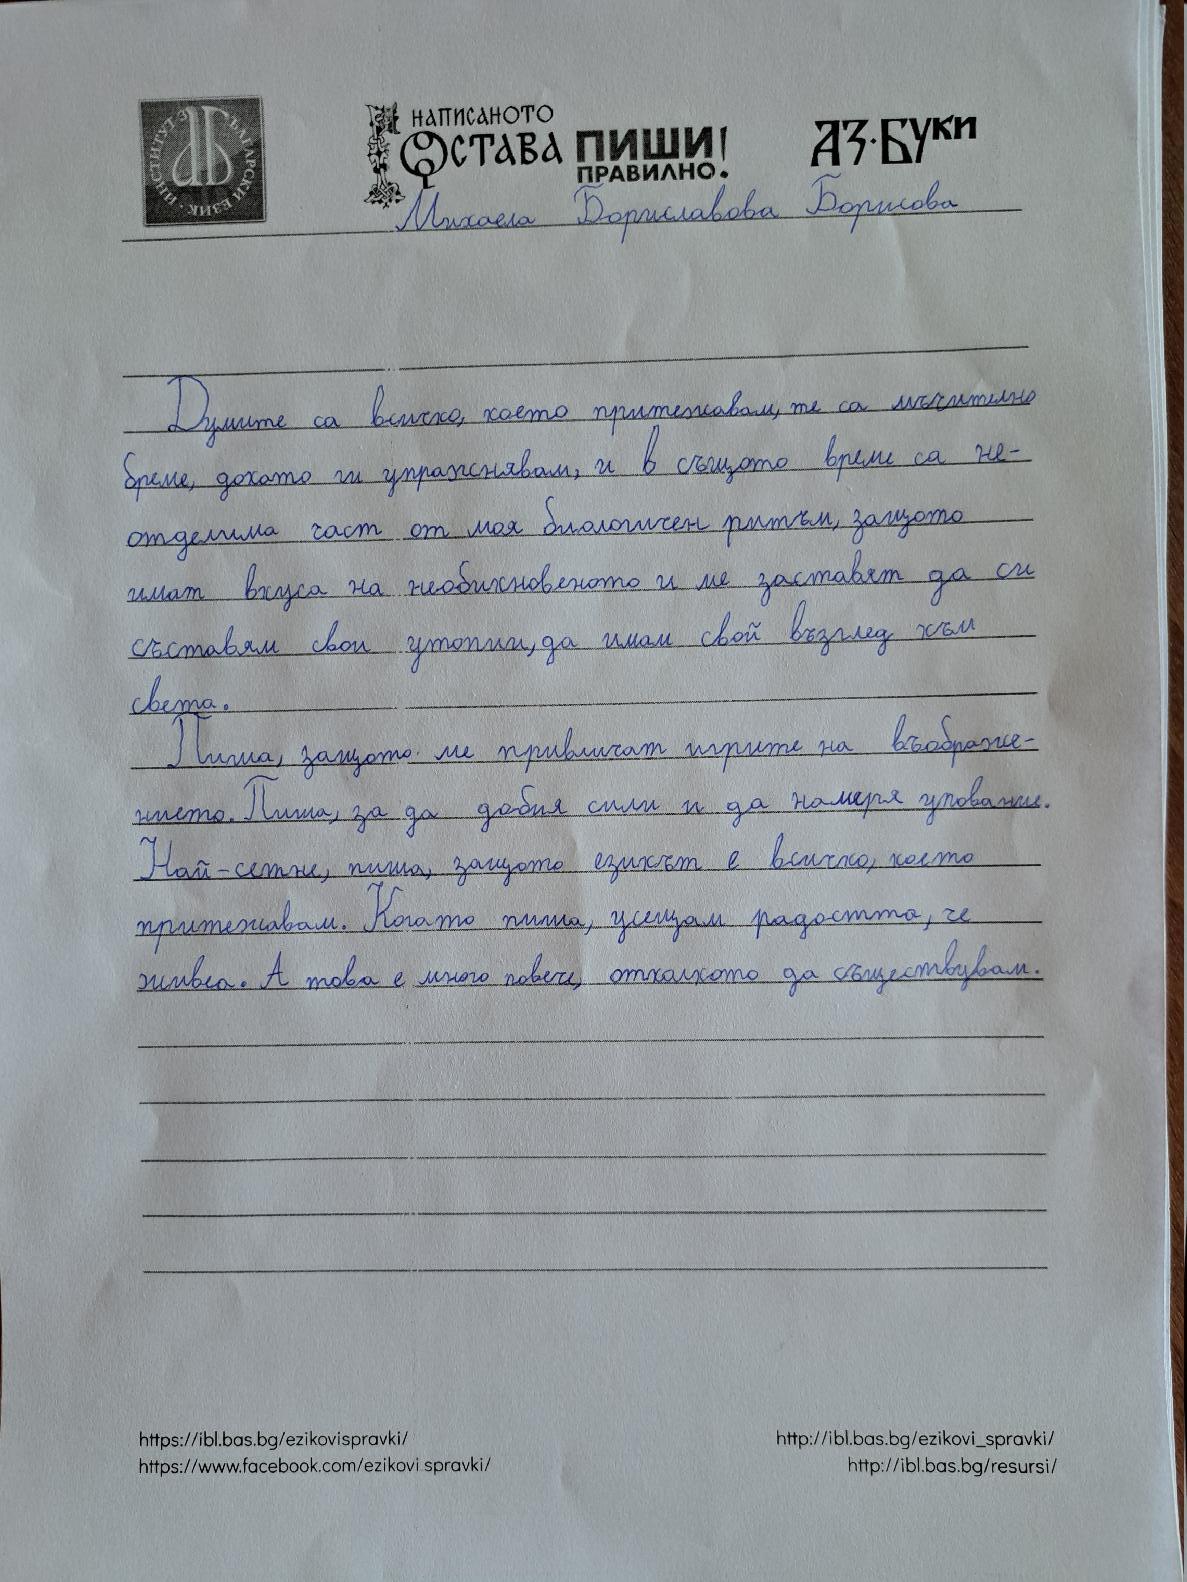 ИНСТИТУТ ЗА БЪЛГАРСКИ ЕЗИК
НАПИСАНОТО
ОСТАВА ПИШИ!
ПРАВИЛНО.
АЗ·БУКИ
Михаела Бориславова Борисова
Думите са всичко, което притежавам, те са мъчително
бреме, докато ги упражнявам, и в същото време са не-
отделима част от моя биологичен ритъм, защото
имат вкуса на необикновеното и ме заставят да си
съставям свои утопии, да имам свой възглед към
света.
Пиша, защото ме привличат игрите на въображе-
нието. Пиша, за да добия сили и да намеря упование.
Най-сетне, пиша, защото езикът е всичко, което
притежавам. Когато пиша, усещам радостта, че
живея. А това е много повече, отколкото да съществувам.
https://ibl.bas.bg/ezikovispravki/ http://ibl.bas.bg/ezikovi_spravki/
https://www.facebook.com/ezikovi.spravki/ http://ibl.bas.bg/resursi/